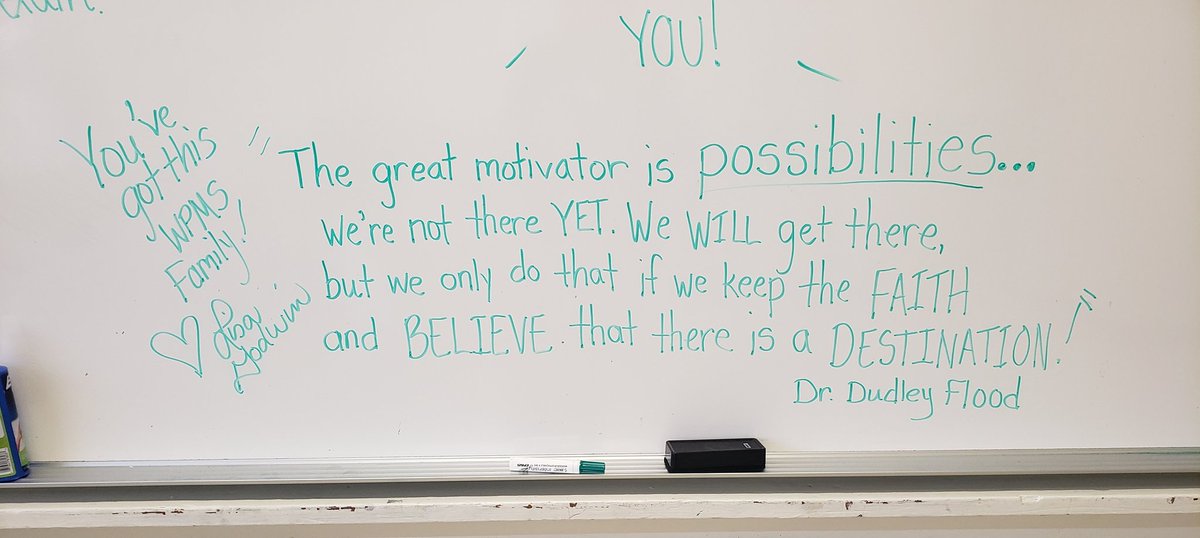 YOU!
You've
got this
WPMS
Family!
♡ Lisa
Godwin
"The great motivator is possibilities...
We're not there YET. We WILL get there,
but we only do that if we keep the FAITH
and BELIEVE that there is a DESTINATION!"
Dr. Dudley Flood
EXPO